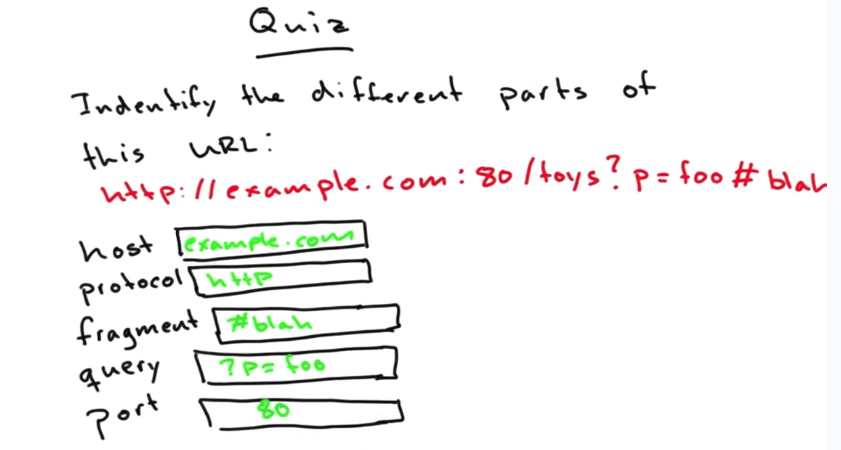 Quiz
Indentify the different parts of
this URL:
http://example.com:80/toys?p=foo#blah
host example.com
protocol http
fragment #blah
query ?p=foo
port 80